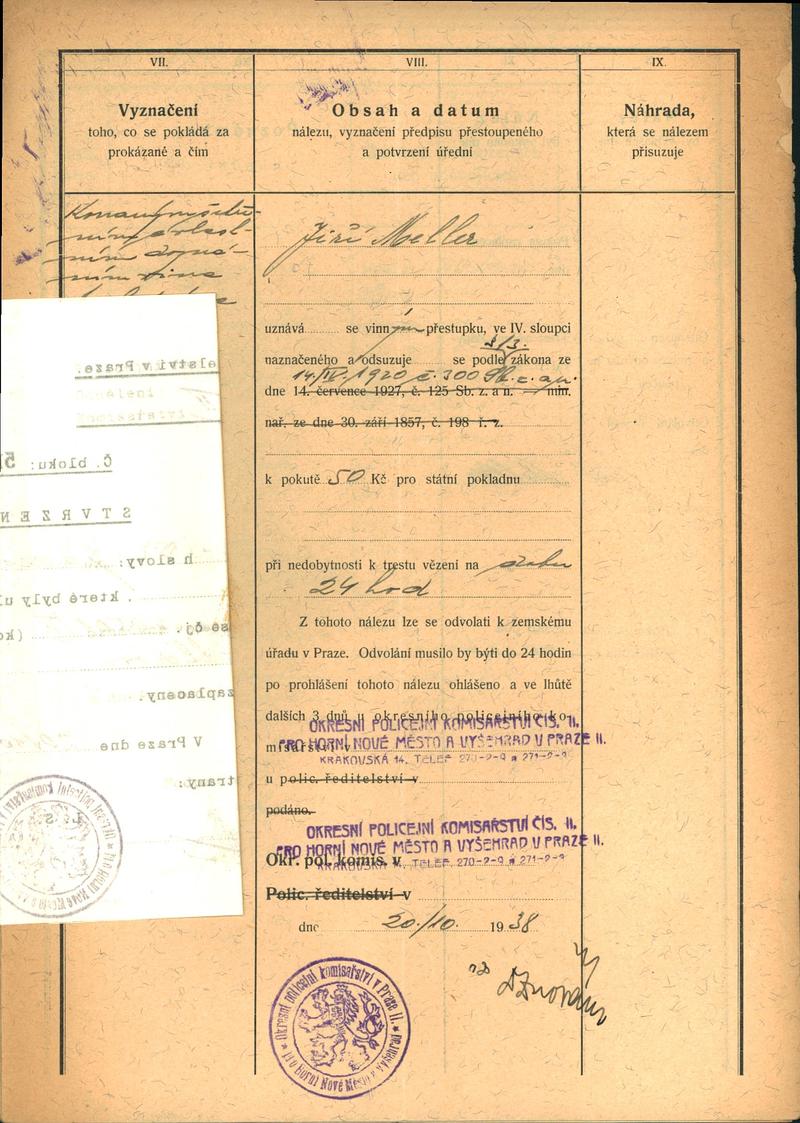 VII.
Vyznačení
toho, co se pokládá za
prokázané a čím
Konaným šetře-
ním a vlast-
ním dozná-
ním vina
VIII.
Obsah a datum
nálezu, vyznačení předpisu přestoupeného
a potvrzení úřední
Jiří Meller
uznává se vinným přestupku, ve IV. sloupci
naznačeného a odsuzuje se podle § 3. zákona ze
14./IV. 1920 č. 300 Sb. z. a n.
dne 14. července 1927, č. 125 Sb. z. a n. min.
nař. ze dne 30. září 1857, č. 198 ř. z.
k pokutě 50 Kč pro státní pokladnu
při nedobytnosti k trestu vězení na dobu
24 hod
Z tohoto nálezu lze se odvolati k zemskému
úřadu v Praze. Odvolání musilo by býti do 24 hodin
po prohlášení tohoto nálezu ohlášeno a ve lhůtě
dalších 3 dnů u okresního policejního ko-
misařství v
OKRESNÍ POLICEJNÍ KOMISAŘSTVÍ ČÍS. II.
PRO HORNÍ NOVÉ MĚSTO A VYŠEHRAD V PRAZE II.
KRAKOVSKÁ 14. TELEF. 270-9-9 a 271-9-9
u polic. ředitelství v
podáno.
OKRESNÍ POLICEJNÍ KOMISAŘSTVÍ ČÍS. II.
PRO HORNÍ NOVÉ MĚSTO A VYŠEHRAD V PRAZE II.
KRAKOVSKÁ 14. TELEF. 270-9-9 a 271-9-9
Okr. pol. komis. v
Polic. ředitelství v
dne 20./10. 1938
Okresní policejní komisařství v Praze II.
pro horní Nové Město
IX.
Náhrada,
která se nálezem
přisuzuje
elství v Praze.
Oddělení
Komisařství
Č. bloku: 5
STVRZEN
h slovy:
které byly ul
se čj. (ko
zaplaceny.
V Praze dne
trany: